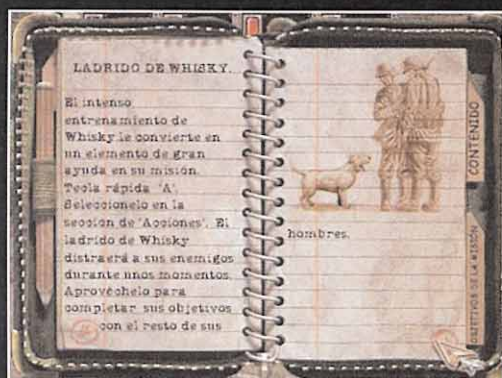 LADRIDO DE WHISKY.
El intenso
entrenamiento de
Whisky le convierte en
un elemento de gran
ayuda en su misión.
Tecla rápida 'A'.
Seleccionelo en la
sección de 'Acciones'. El
ladrido de Whisky
distraerá a sus enemigos
durante unos momentos.
Aprovéchelo para
completar sus objetivos
con el resto de sus
hombres.
CONTENIDO
OBJETIVOS DE LA MISIÓN